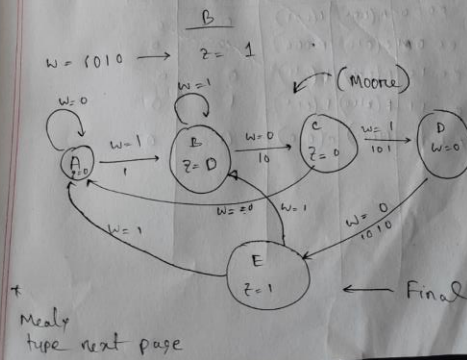 B
w = 1010 → z = 1
(Moore)
w=0
w=1
A
z=0
w=1
1
B
z=0
w=0
10
C
z=0
w=1
101
D
w=0
w=0
w=1
w=0
1010
w=1
E
z=1
← Final
*
Mealy
type next page